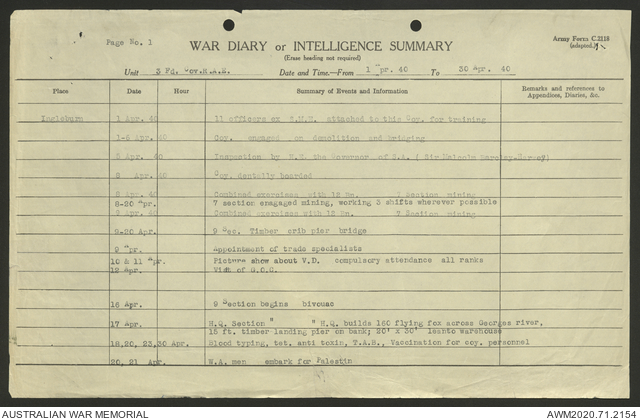 Page No. 1
WAR DIARY or INTELLIGENCE SUMMARY
Army Form C.2118
(adapted.)
(Erase heading not required)
Unit 3 Fd. Coy.R.A.E. Date and Time.—From 1 Apr. 40 To 30 Apr. 40
Place Date Hour Summary of Events and Information Remarks and references to
Appendices, Diaries, &c.
Ingleburn 1 Apr. 40 11 officers ex attached to this Coy. for training
1-6 Apr. 40 Coy. engaged on demolition and bridging
5 Apr. 40 Inspection by H.E. the Governor of S.A. ( Sir Malcolm Barclay-Harvey)
8 Apr. 40 Coy. dentally boarded
8 Apr. 40 Combined exercises with 18 Bn. 7 Section mining
8-20 Apr. 7 section enagaged mining, working 3 shifts wherever possible
9 Apr. 40 Combined exercises with 18 Bn. 7 Section mining
9-20 Apr. 9 Sec. Timber crib pier bridge
9 Apr. Appointment of trade specialists
10 & 11 Apr. Picture show about V.D. compulsory attendance all ranks
12 Apr. Visit of G.O.C.
16 Apr. 9 Section begins bivouac
17 Apr. H.Q. Section " " H.Q. builds 160 flying fox across Georges river,
15 ft. timber landing pier on bank; 20' x 30' leanto warehouse
18,20, 23,30 Apr. Blood typing, tet. anti toxin, T.A.B., Vaccination for coy. personnel
20, 21 Apr. W.A. men embark for Palestin
AUSTRALIAN WAR MEMORIAL AWM2020.71.2154